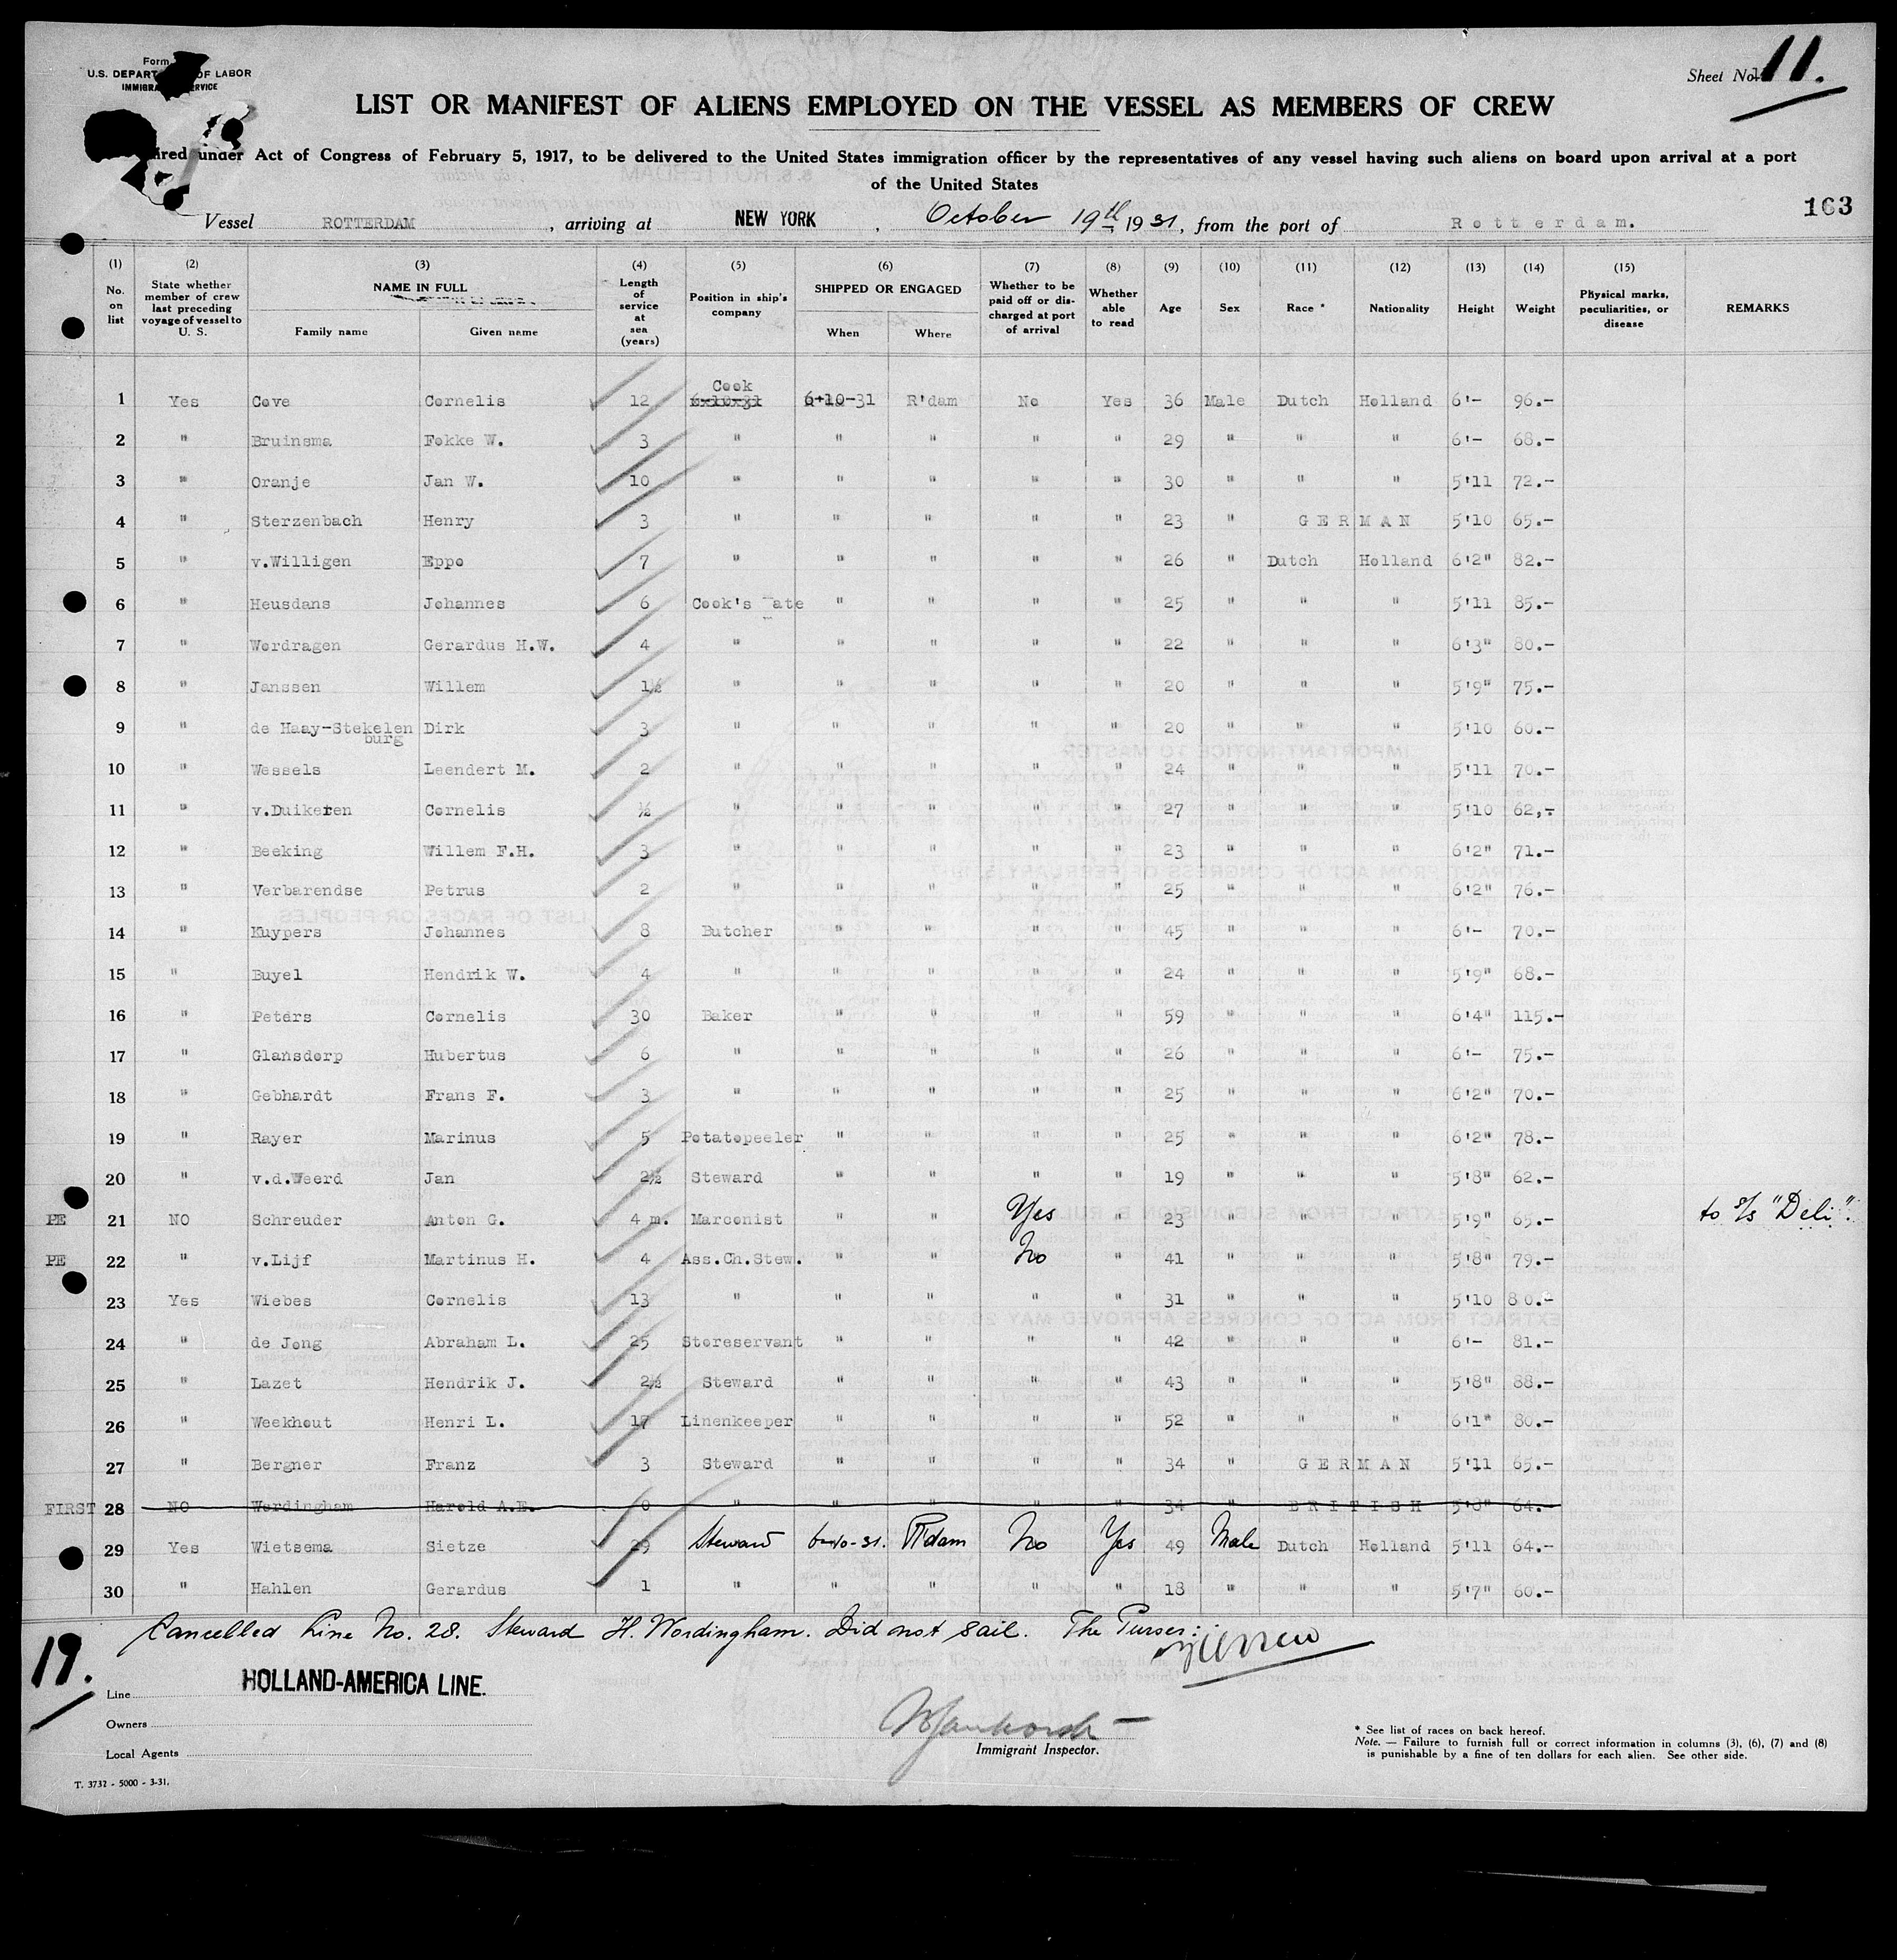 Form
U.S. DEPARTMENT OF LABOR
IMMIGRATION SERVICE
Sheet No. 11.
LIST OR MANIFEST OF ALIENS EMPLOYED ON THE VESSEL AS MEMBERS OF CREW
ired under Act of Congress of February 5, 1917, to be delivered to the United States immigration officer by the representatives of any vessel having such aliens on board upon arrival at a port
of the United States
163
Vessel ROTTERDAM , arriving at NEW YORK , October 19th, 1931, from the port of Rotterdam.
(1) No. on list (2) State whether member of crew last preceding voyage of vessel to U. S. (3) NAME IN FULL Family name Given name (4) Length of service at sea (years) (5) Position in ship's company (6) SHIPPED OR ENGAGED When Where (7) Whether to be paid off or discharged at port of arrival (8) Whether able to read (9) Age (10) Sex (11) Race * (12) Nationality (13) Height (14) Weight (15) Physical marks, peculiarities, or disease REMARKS
1 Yes Cove Cornelis 12 Cook 6-10-31 6-10-31 R'dam No Yes 36 Male Dutch Holland 6'- 96.-
2 " Bruinsma Fokke W. 3 " " " " " 29 " " " 6'- 68.-
3 " Oranje Jan W. 10 " " " " " 30 " " " 5'11 72.-
4 " Sterzenbach Henry 3 " " " " " 23 " GERMAN 5'10 65.-
5 " v.Willigen Eppo 7 " " " " " 26 " Dutch Holland 6'2" 82.-
6 " Heusdans Johannes 6 Cook's ate " " " " 25 " " " 5'11 85.-
7 " Wordragen Gerardus H.W. 4 " " " " " 22 " " " 6'3" 80.-
8 " Janssen Willem 1½ " " " " " 20 " " " 5'9" 75.-
9 " de Haay-Stekelenburg Dirk 3 " " " " " 20 " " " 5'10 60.-
10 " Wessels Leendert M. 2 " " " " " 24 " " " 5'11 70.-
11 " v.Duikeren Cornelis ½ " " " " " 27 " " " 5'10 62,-
12 " Beeking Willem F.H. 3 " " " " " 23 " " " 6'2" 71.-
13 " Verbarendse Petrus 2 " " " " " 25 " " " 6'2" 76.-
14 " Kuypers Johannes 8 Butcher " " " " 45 " " " 6'- 70.-
15 " Buyel Hendrik W. 4 " " " " " 24 " " " 5'9" 68.-
16 " Peters Cornelis 30 Baker " " " " 59 " " " 6'4" 115.-
17 " Glansdorp Hubertus 6 " " " " " 26 " " " 6'- 75.-
18 " Gebhardt Frans F. 3 " " " " " 25 " " " 6'2" 70.-
19 " Rayer Marinus 5 Potatopeeler " " " " 25 " " " 6'2" 78.-
20 " v.d.Weerd Jan 2½ Steward " " " " 19 " " " 5'8" 62.-
PE 21 NO Schreuder Anton G. 4 m. Marconist " " Yes " 23 " " " 5'9" 65.- to s/s "Deli".
PE 22 " v.Lijf Martinus H. 4 Ass.Ch.Stew. " " No " 41 " " " 5'8" 79.-
23 Yes Wiebes Cornelis 13 " " " " " 31 " " " 5'10 80.-
24 " de Jong Abraham L. 25 Storeservant " " " " 42 " " " 6'- 81.-
25 " Lazet Hendrik J. 2½ Steward " " " " 43 " " " 5'8" 88.-
26 " Weekhout Henri L. 17 Linenkeeper " " " " 52 " " " 6'1" 80.-
27 " Bergner Franz 3 Steward " " " " 34 " GERMAN 5'11 65.-
FIRST 28 NO Wordingham Harold A.E. 0 " " " " " 34 " BRITISH 5'8" 64.-
29 Yes Wietsema Sietze 29 Steward 6-10-31. R'dam No Yes 49 Male Dutch Holland 5'11 64.-
30 " Hahlen Gerardus 1 " " " " " 18 " " " 5'7" 60.-
Cancelled Line No. 28. Steward H. Wordingham. Did not sail. The Purser:
19.
Line HOLLAND-AMERICA LINE.
Owners
Local Agents
Immigrant Inspector.
* See list of races on back hereof.
Note. — Failure to furnish full or correct information in columns (3), (6), (7) and (8)
is punishable by a fine of ten dollars for each alien. See other side.
T. 3732 - 5000 - 3-31.